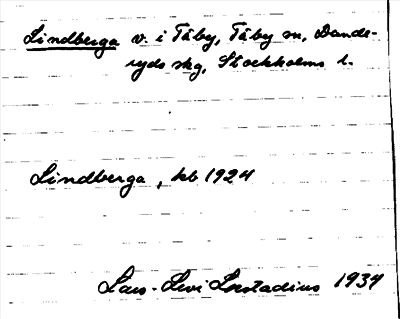 Lindberga v. i Täby, Täby sn, Dande-
ryds skg, Stockholms l.
Lindberga, kb 1924
Lars-Levi Læstadius 1934